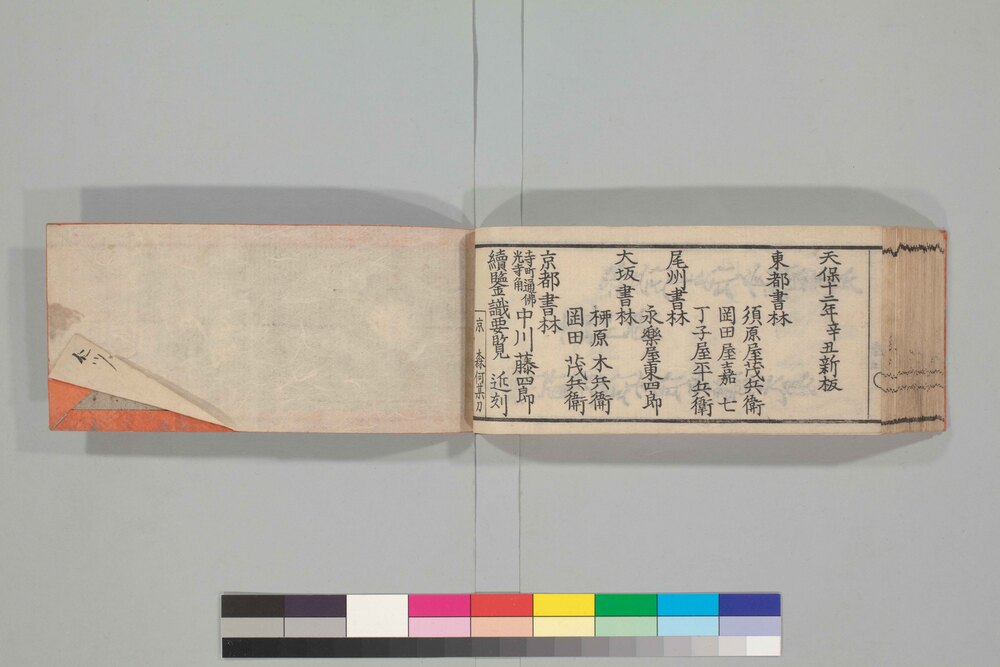 天保十二年辛丑新板
東都書林
須原屋茂兵衛
岡田屋嘉七
丁子屋平兵衛
尾州書林
永樂屋東四郎
大坂書林
栁原木兵衛
岡田茂兵衛
京都書林
寺町通佛
光寺角
中川藤四郎
續鑒識要覧 近刻
京 森何某刀